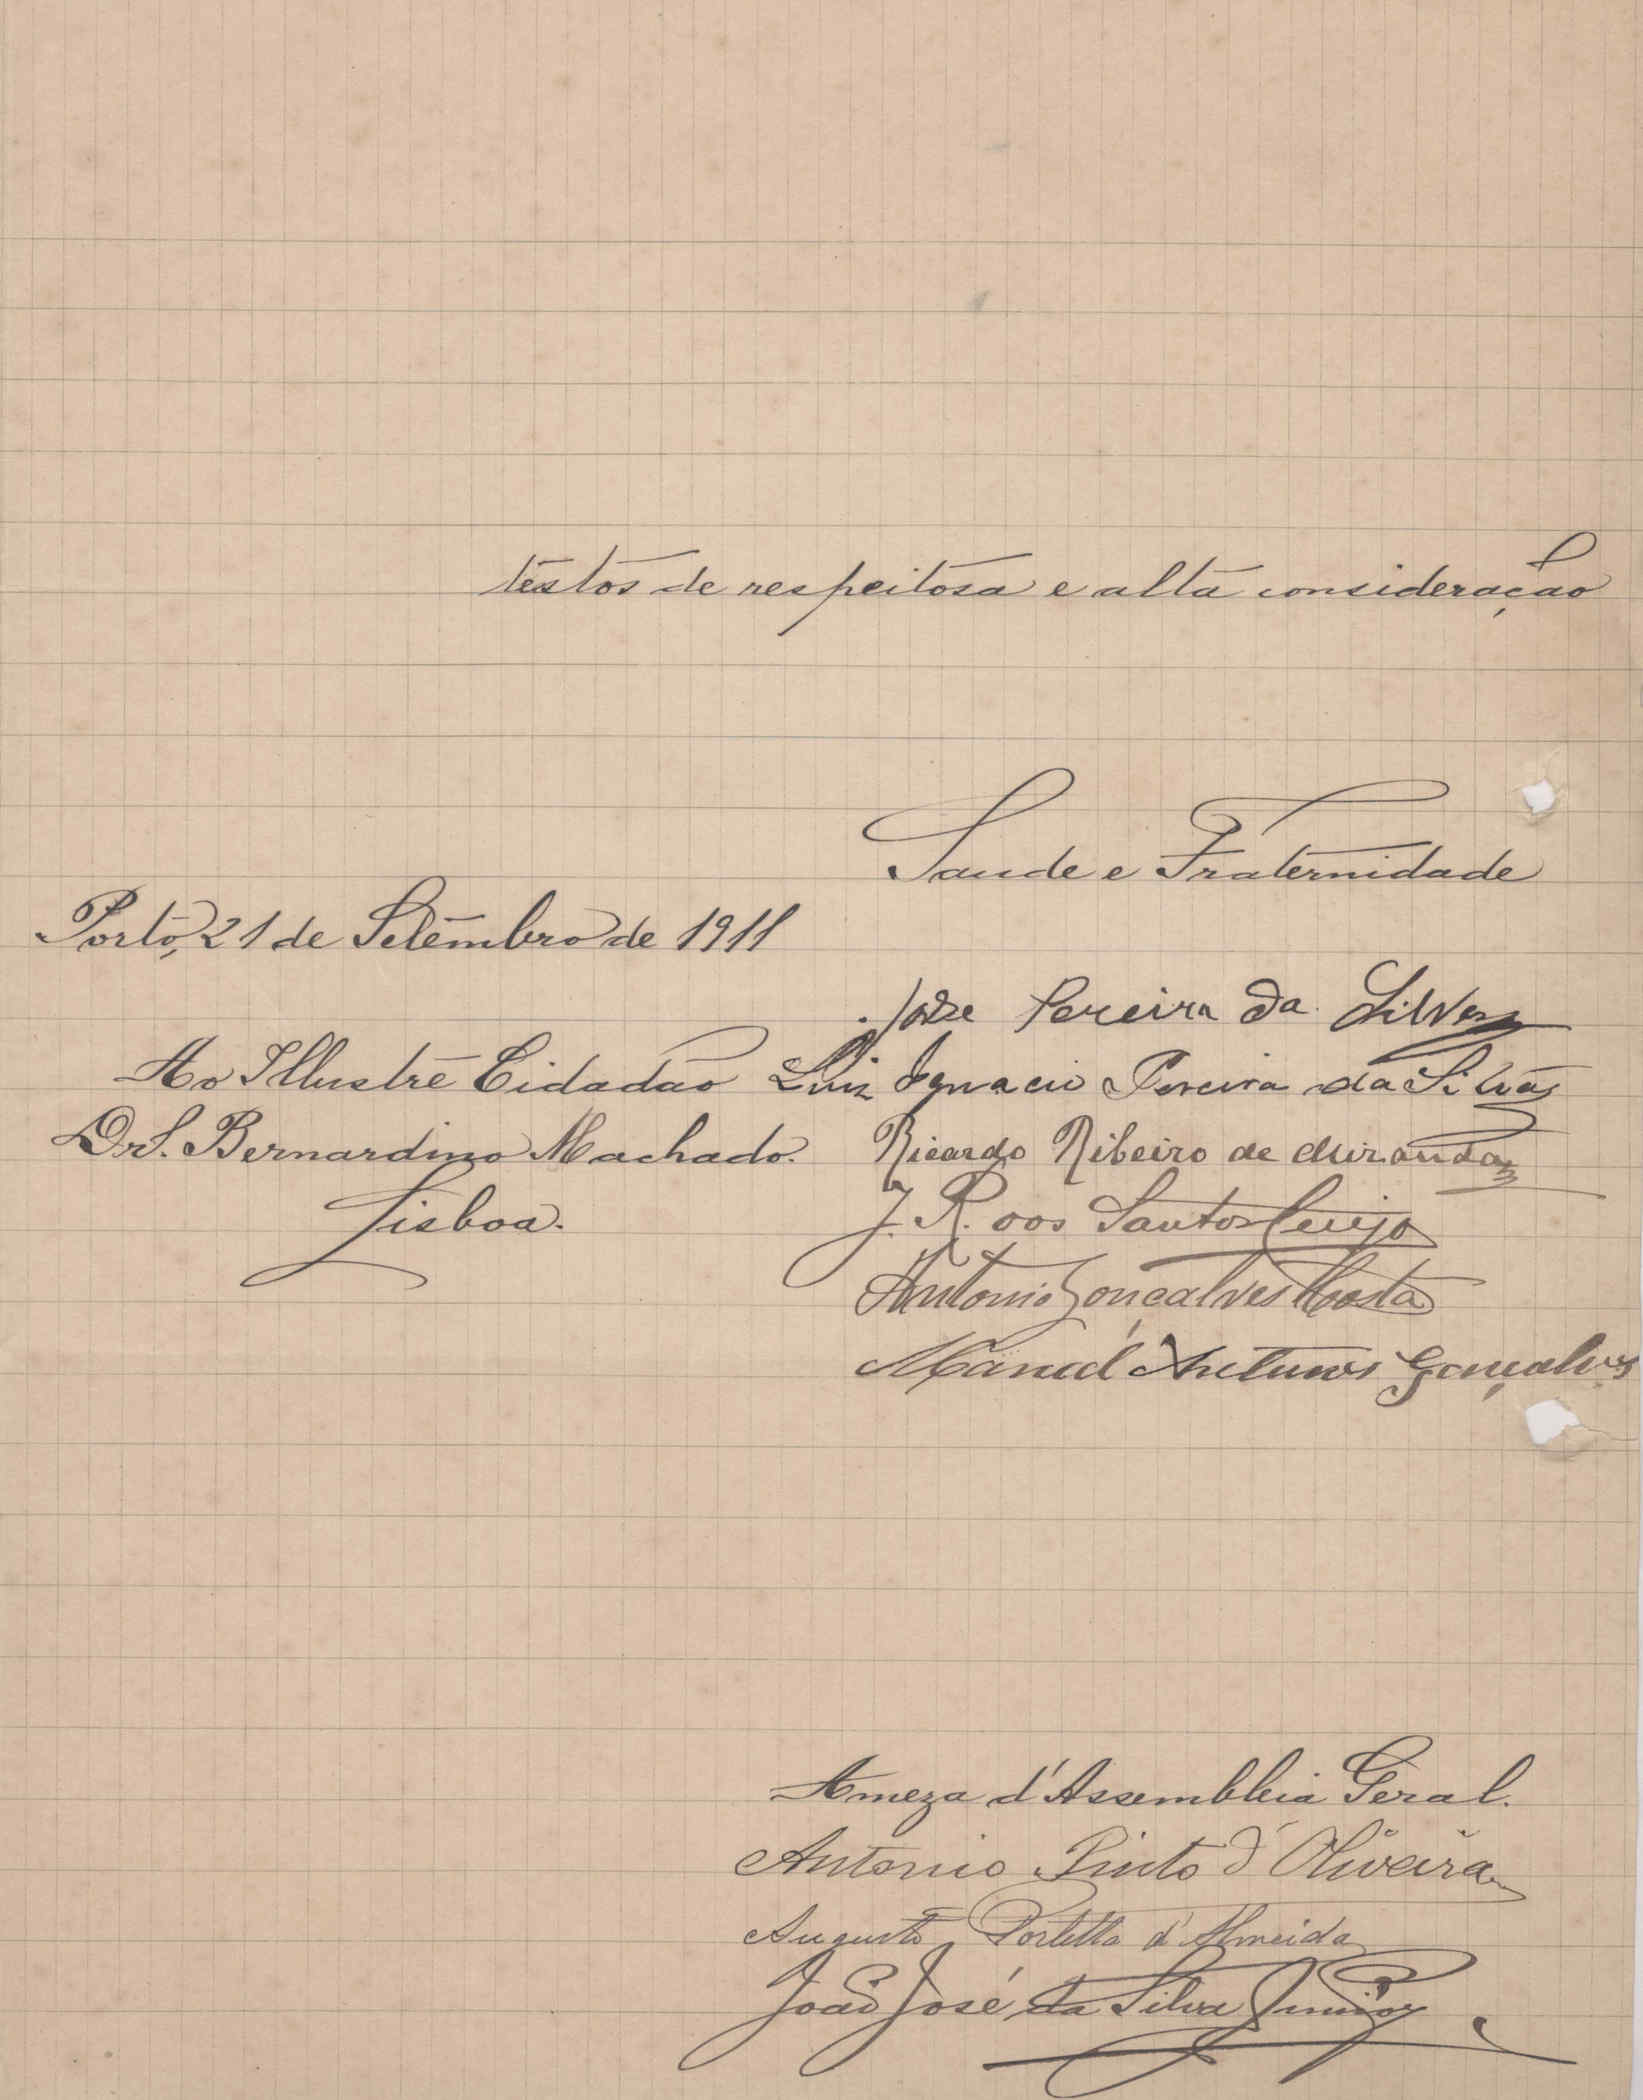 testos de respeitosa e alta consideração
Saude e Fraternidade
Porto, 21 de Setembro de 1911
José Pereira da Silva
Ao Illustre Cidadão
Luiz Ignacio Pereira da Silva
Dr. Bernardino Machado.
Ricardo Ribeiro de Miranda
Lisboa.
J. R. dos Santos
Antonio Gonçalves Costa
Manuel Antunes Gonçalves
A meza d'Assembleia Geral.
Antonio Pinto d'Oliveira
Augusto d'Almeida
João José da Silva Junior